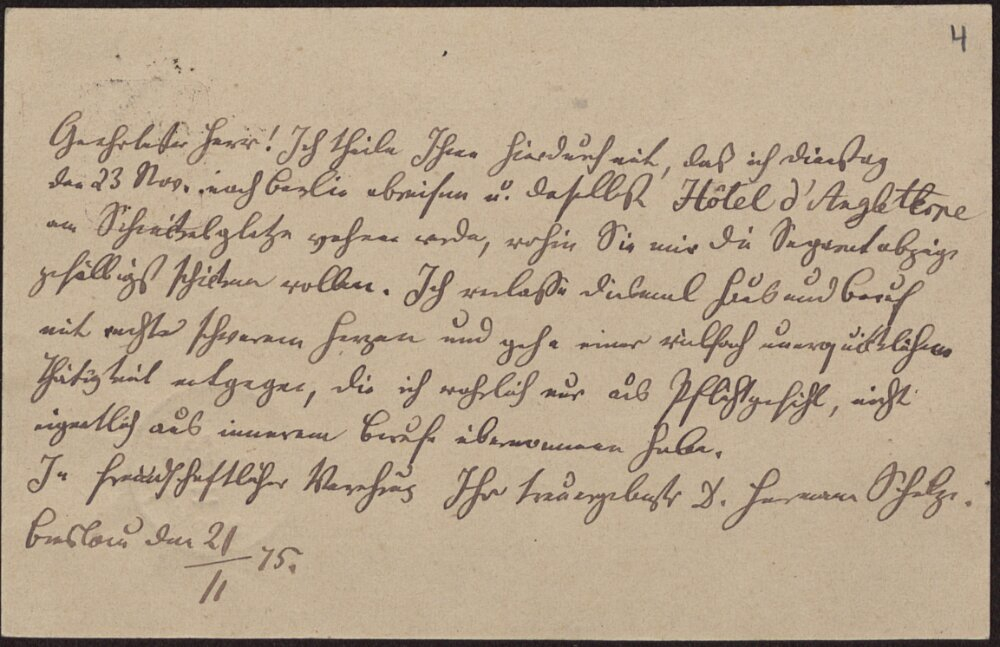 4
Geehrtester Herr! Ich theile Ihnen hierdurch mit, das ich Dienstag
den 23 Nov. nach Berlin abreisen u. daselbst Hôtel d'Angleterre
am Schinkelplatze wohnen werde, wohin Sie mir die
gefälligst schicken wollen. Ich verlasse diesmal Haus und Beruf
mit recht schwerem Herzen und gehe einer vielfach unerquicklichen
Thätigkeit entgegen, die ich wahrlich nur aus Pflichtgefühl, nicht
eigentlich aus innerem Berufe übernommen habe.
In freundschaftlicher Verehrung Ihr treuergebenster D. Hermann
Breslau den 21/11 75.